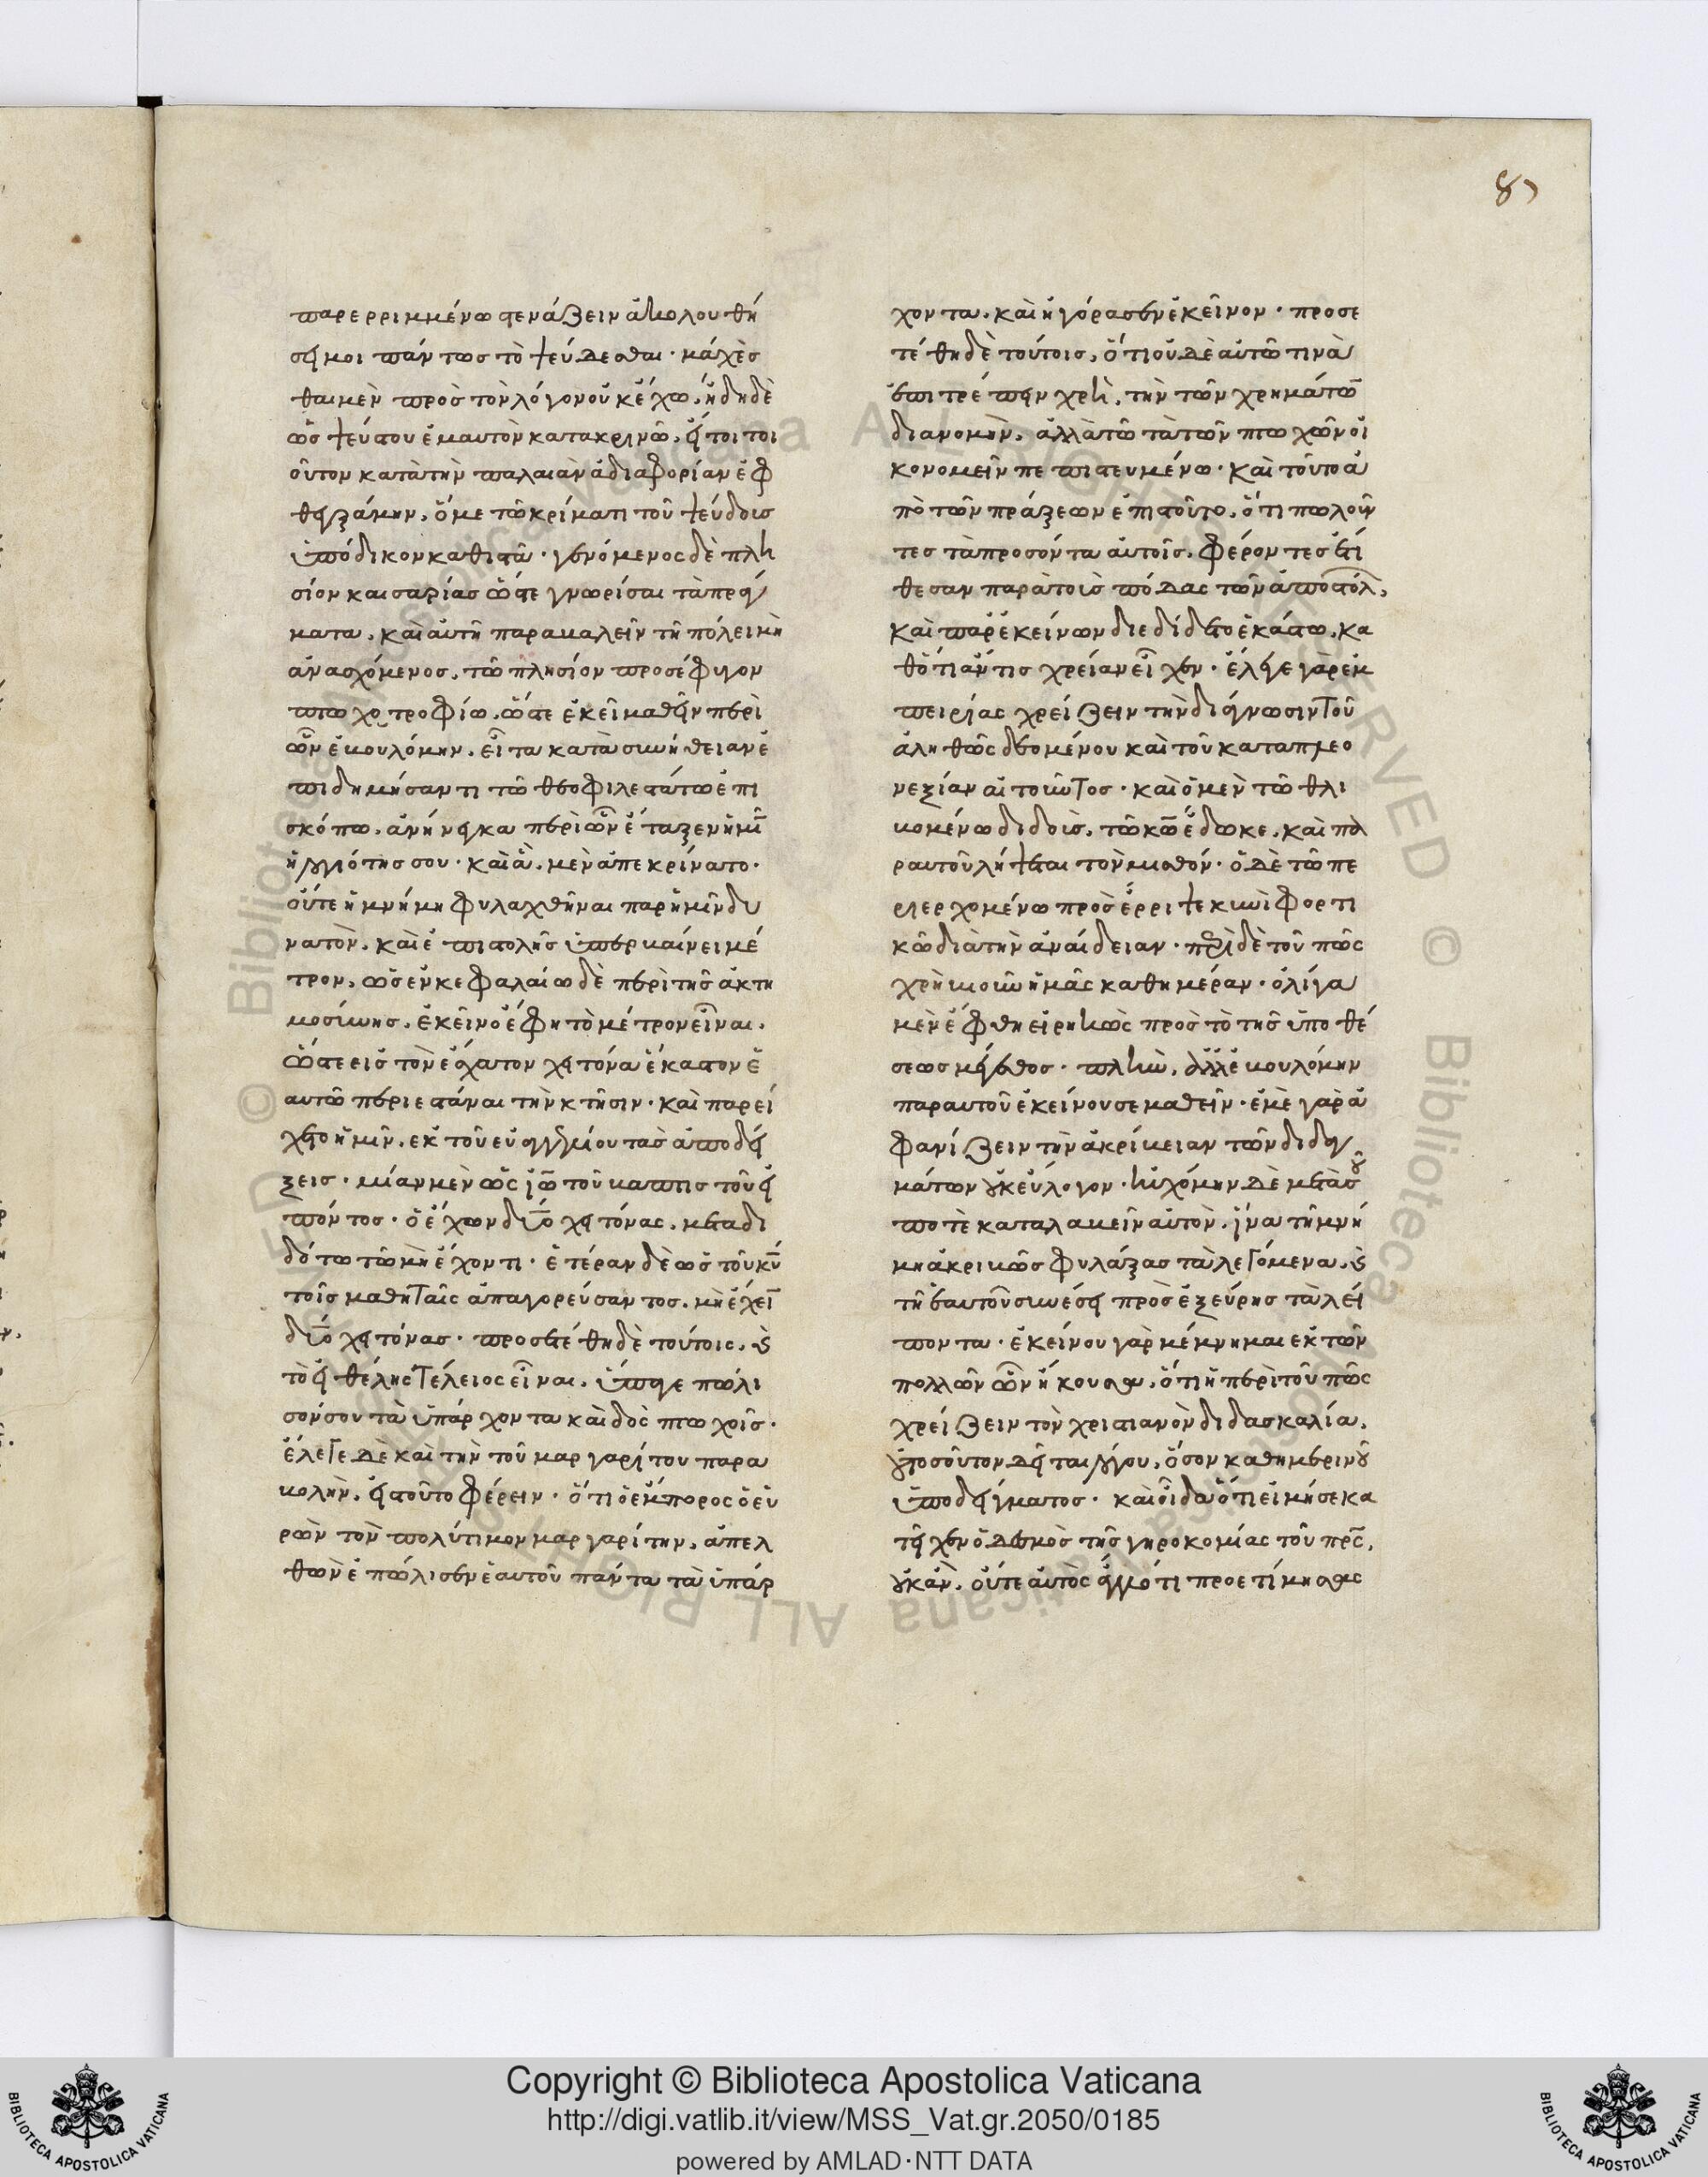 87
παρερριμμένω στενάζειν ἀκολουθή
σει μοι πάντως τὸ ψεύδεσθαι· μάχεσ
θαι μὲν πρὸς τὸν λόγον οὐκ ἔχω, ἤδη δὲ
ὡς ψεύστου ἐμαυτὸν κατακρινῶ, εἴ τοι τοι
οῦτον κατὰ τὴν παλαιὰν ἀδιαφορίαν ἐφ
θεγξάμην, ὅ με τῶ κρίματι τοῦ ψεύδους
ὑπόδικον καθιστᾶ· γενόμενος δὲ πλη
σίον καισαρίας ὥστε γνωρίσαι τὰ πράγ
ματα, καὶ αὐτῆ παραβαλεῖν τῆ πόλει μὴ
ἀνασχόμενος, τῶ πλησίον προσέφυγον
πτωχοτροφίω, ὥστε ἐκεῖ μαθεῖν περὶ
ὧν ἐβουλόμην, εἶτα κατὰ συνήθειαν ἐ
πιδημήσαντι τῶ θεοφιλεστάτω ἐπι
σκόπω, ἀνήνεγκα περὶ ὧν ἐπέταξεν ἡμῖν
ἡ λογιότης σου· καὶ ἃ μὲν ἀπεκρίνατο·
οὔτε ἡ μνήμη φυλαχθῆναι παρ ἡμῖν δυ
νατὸν, καὶ ἐπιστολῆς ὑπερβαίνει μέ
τρον, ὡς ἐν κεφαλαίω δὲ περὶ τῆς ἀκτη
μοσύνης, ἐκεῖνο ἔφη τὸ μέτρον εἶναι,
ὥστε εἰς τὸν ἔσχατον χιτόνα ἕκαστον ἑ
αυτῶ περιεστάναι τὴν κτῆσιν· καὶ παρεί
χετο ἡμῖν, ἐκ τοῦ εὐαγγελίου τὰς ἀποδεί
ξεις· μίαν μὲν ὡς ἰω τοῦ βαπτιστοῦ εἰ
πόντος· ὁ ἔχων δύο χιτόνας, μεταδι
δότω τῶ μὴ ἔχοντι· ἑτέραν δὲ ὡς τοῦ κυ
τοῖς μαθηταῖς ἀπαγορεύσαντος, μὴ ἔχειν
δύο χιτόνας· προσετέθη δὲ τούτοις, καὶ
τὸ εἰ θέλης τέλειος εἶναι, ὕπαγε πώλι
σόν σου τὰ ὑπάρχοντα καὶ δὸς πτωχοῖς·
ἔλεγε δὲ καὶ τὴν τοῦ μαργαρίτου παρα
βολὴν, εἰς τοῦτο φέρειν· ὅτι ὁ ἔμπορος ὁ εὑ
ρὼν τὸν πολύτιμον μαργαρίτην, ἀπελ
θὼν ἐπώλισεν ἑαυτοῦ πάντα τὰ ὑπάρ
χοντα, καὶ ἠγόρασεν ἐκεῖνον· προσε
τέθη δὲ τούτοις, ὅτι οὐδὲ αὐτῶ τινὰ
ἐπιτρέπειν χρὴ, τὴν τῶν χρημάτων
διανομὴν, ἀλλὰ τῶ τὰ τῶν πτωχῶν οἰ
κονομεῖν πεπιστευμένω· καὶ τοῦτο ἀ
πὸ τῶν πράξεων ἐπιστοῦτο, ὅτι πωλοῦν
τες τὰ προσόντα αὐτοῖς, φέροντες ἐτί
θεσαν παρὰ τοὺς πόδας τῶν ἀποστόλ,
καὶ παρ ἐκείνων διεδίδετο ἑκάστω, κα
θότι ἄν τις χρείαν εἶχεν· ἔλεγε γὰρ ἐμ
πειρίας χρείζειν τὴν διάγνωσιν τοῦ
ἀληθῶς δεομένου καὶ τοῦ κατα πλεο
νεξίαν αἰτοῦντος· καὶ ὁ μὲν τῶ θλι
βομένω διδοὺς, τῶ κω ἔδωκε, καὶ πα
ρ αυτοῦ λήψεται τὸν μισθόν· ὁ δὲ τῶ πε
ριερχομένω προσέρριψε κυνὶ φορτι
κῶ διὰ τὴν ἀναίδειαν· περὶ δὲ τοῦ πῶς
χρὴ βιοῦν ἡμᾶς καθημέραν· ὀλίγα
μὲν ἔφθη εἰρηκὼς πρὸς τὸ τῆς ὑποθέ
σεως μέγεθος· πλὴν, ἀλλ ἐβουλόμην
παρ αυτοῦ ἐκείνου σε μαθεῖν· ἐμὲ γὰρ ἀ
φανίζειν τὴν ἀκρίβειαν τῶν διδαγ
μάτων οὐκ εὔλογον· ηὐχόμην δὲ μετὰ σοῦ
ποτὲ καταλαβεῖν αὐτὸν, ἵνα τῆ μνή
μη ἀκριβῶς φυλάξας τὰ λεγόμενα, καὶ
τῆ ἑαυτοῦ συνέσει προσεξεύρης τὰ λεί
ποντα· ἐκείνου γὰρ μέμνημαι ἐκ τῶν
πολλῶν ὧν ἤκουσα, ὅτι ἡ περὶ τοῦ πῶς
χρείζειν τὸν χριστιανὸν διδασκαλία,
οὐ τοσοῦτον δεῖται λόγου, ὅσον καθημερινοῦ
ὑποδείγματος· καὶ οἶδα ὅτι εἰ μή σε κα
τεῖχεν ὁ δεσμὸς τῆς γηροκομίας τοῦ πρς,
οὐκ ἂν, οὔτε αὐτὸς ἄλλό τι προετίμησας
Copyright © Biblioteca Apostolica Vaticana
http://digi.vatlib.it/view/MSS_Vat.gr.2050/0185
powered by AMLAD·NTT DATA
BIBLIOTECA APOSTOLICA VATICANA
BIBLIOTECA APOSTOLICA VATICANA